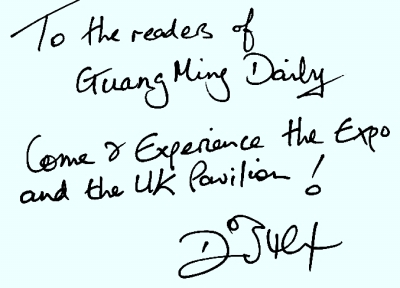 To the readers of
GuangMing Daily
Come & Experience the Expo
and the UK Pavilion!